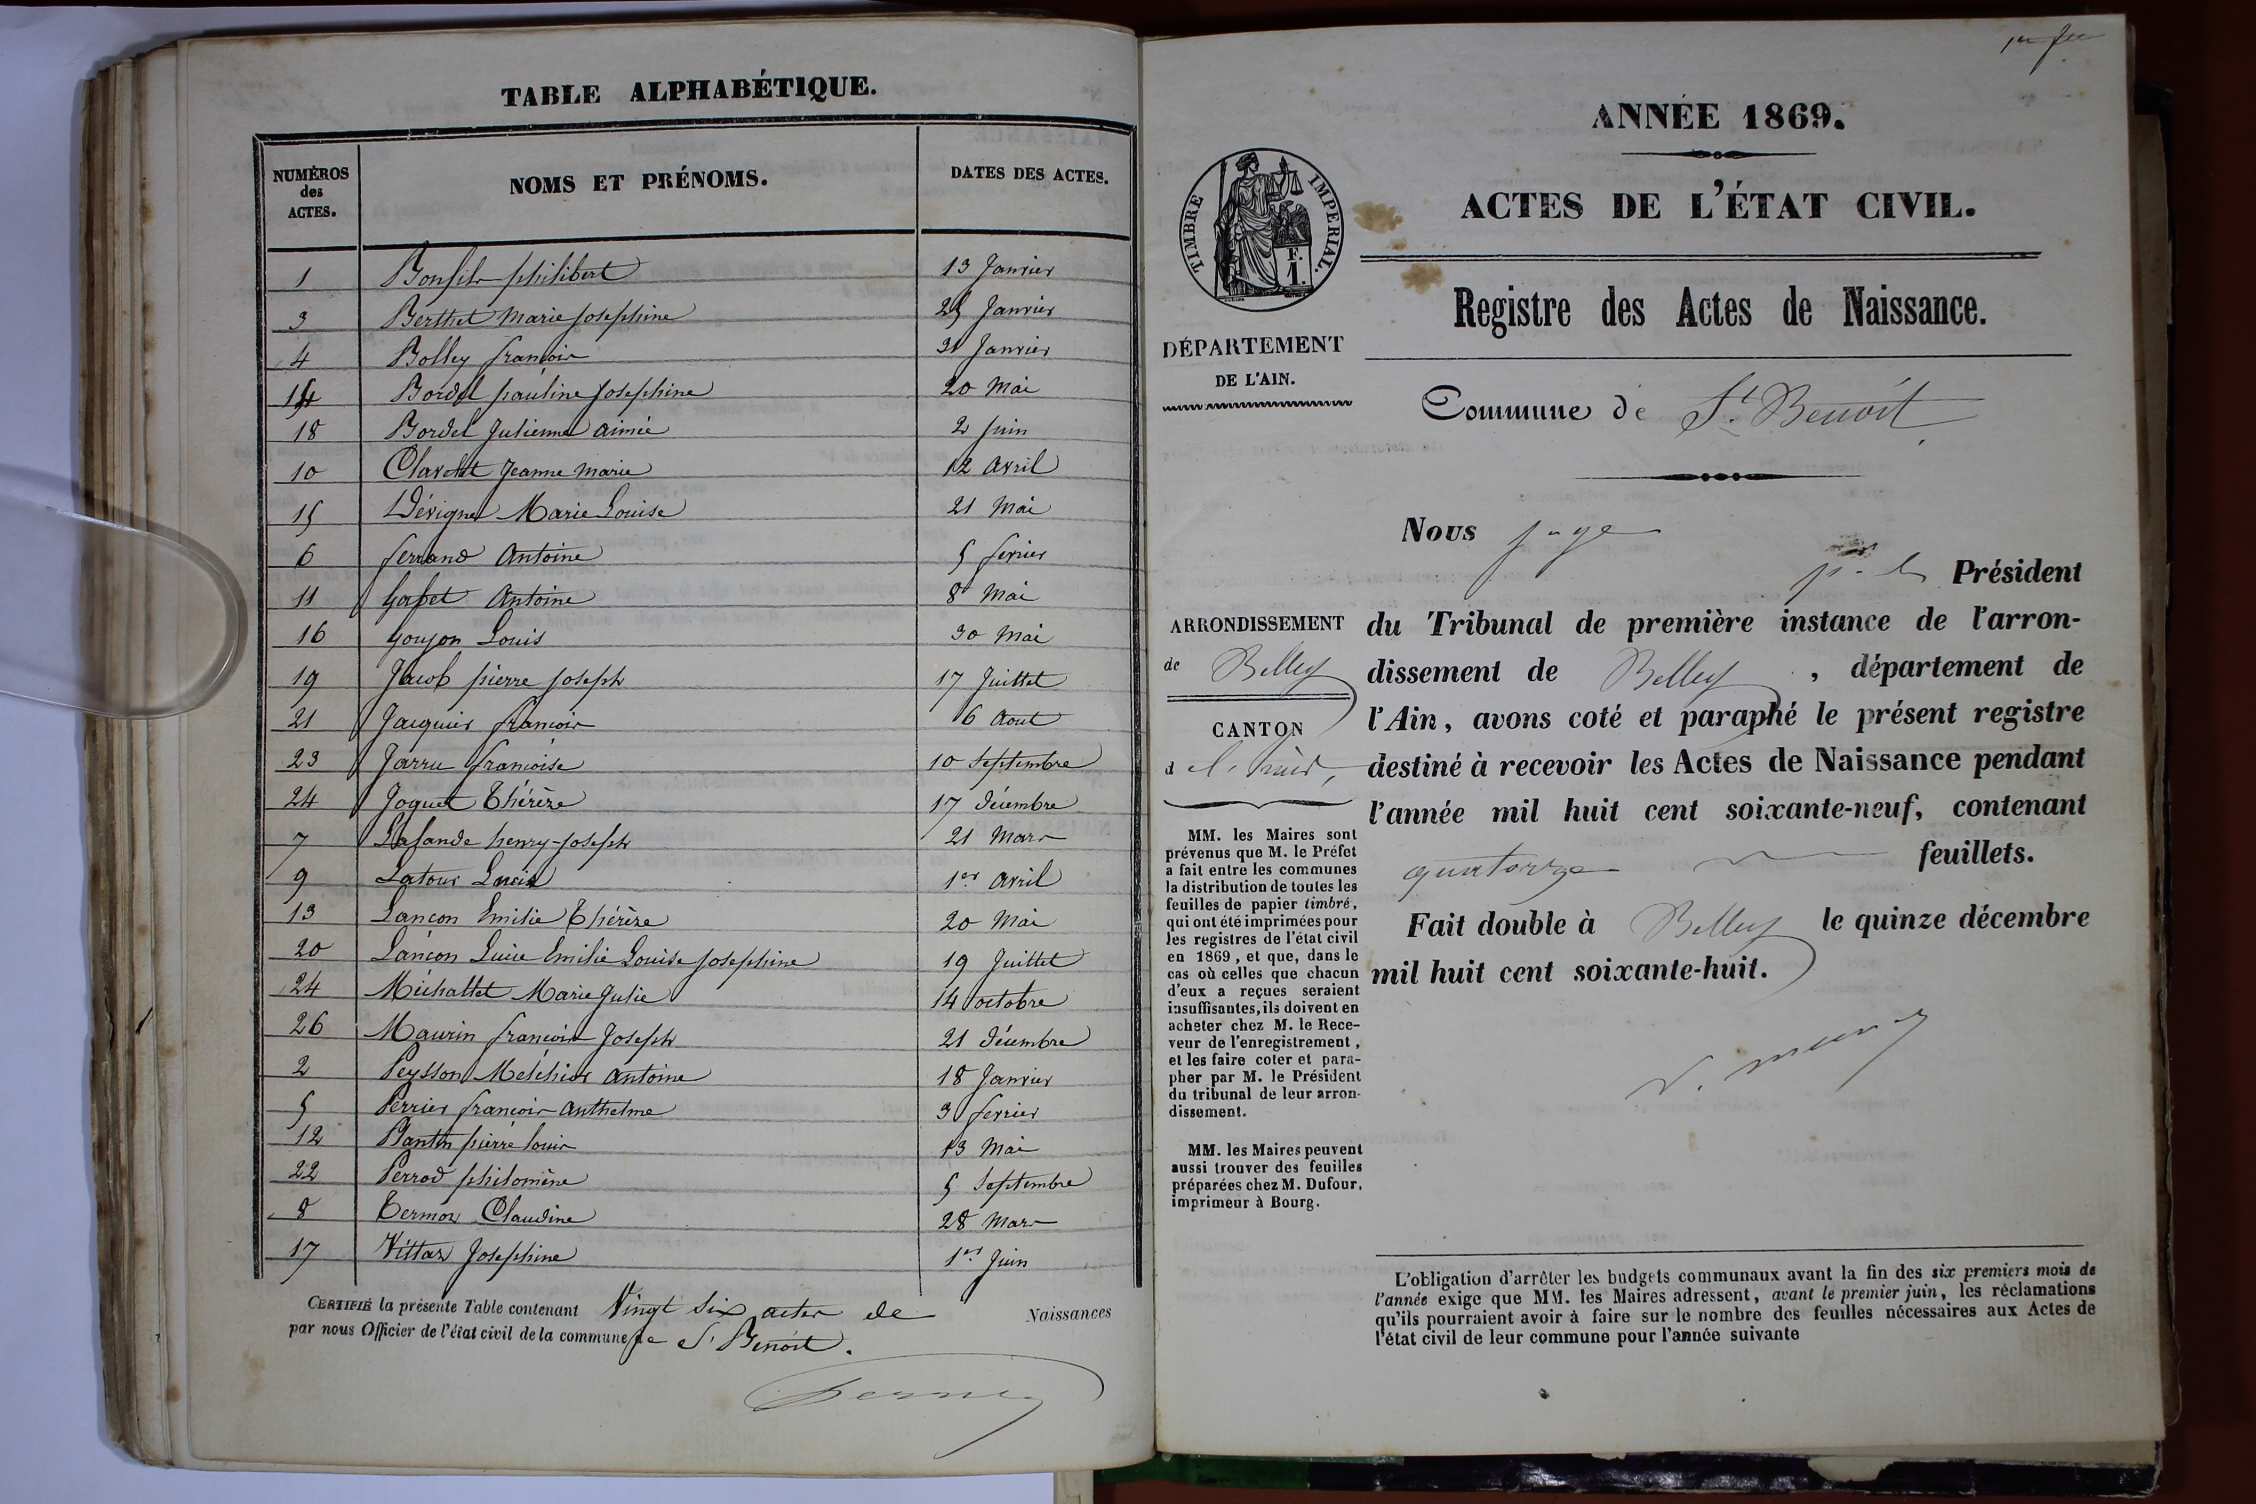 TABLE ALPHABÉTIQUE.
NUMÉROS des ACTES. NOMS ET PRÉNOMS. DATES DES ACTES.
1 Bonfils philibert 13 Janvier
3 Berthet Marie Josephine 25 Janvier
4 Bolley francois 31 Janvier
14 Bordel pauline Josephine 20 Mai
18 Bordel Julienne aimée 2 Juin
10 Clavelet Jeanne Marie 12 Avril
15 Dévigne Marie Louise 21 Mai
6 ferrand Antoine 5 fevrier
11 Antoine 8 Mai
16 Goujon Louis 30 Mai
19 Jacob pierre Joseph 17 Juillet
21 Jacquier francois 6 Aout
23 Jarru francoise 10 Septembre
24 Joguet Thérèze 17 décembre
7 Lafande henry-Joseph 21 Mars
9 Latour 1er Avril
13 Lançon Emilie Thérèze 20 Mai
20 Lançon Lucie Emilie Louise Josephine 19 Juillet
24 Michallet Marie Julie 14 octobre
26 Maurin francois Joseph 21 décembre
2 Peysson Melchior antoine 18 Janvier
5 Perrier francois anthelme 3 fevrier
12 pierre louis 13 Mai
22 Perrod philomène 5 Septembre
8 Termoz Claudine 28 Mars
17 Vittaz Josephine 1er Juin
CERTIFIÉ la présente Table contenant Vingt six actes de Naissances
par nous Officier de l'état civil de la commune de St Benoit.
ANNÉE 1869.
ACTES DE L'ÉTAT CIVIL.
Registre des Actes de Naissance.
TIMBRE IMPERIAL.
F.
1.
DÉPARTEMENT
DE L'AIN.
Commune de St Benoit
ARRONDISSEMENT
de Belley
CANTON
d
MM. les Maires sont
prévenus que M. le Préfet
a fait entre les communes
la distribution de toutes les
feuilles de papier timbré,
qui ont été imprimées pour
les registres de l'état civil
en 1869, et que, dans le
cas où celles que chacun
d'eux a reçues seraient
insuffisantes, ils doivent en
acheter chez M. le Rece-
veur de l'enregistrement,
et les faire coter et para-
pher par M. le Président
du tribunal de leur arron-
dissement.
MM. les Maires peuvent
aussi trouver des feuilles
préparées chez M. Dufour,
imprimeur à Bourg.
Nous juge
pr le Président
du Tribunal de première instance de l'arron-
dissement de Belley, département de
l'Ain, avons coté et paraphé le présent registre
destiné à recevoir les Actes de Naissance pendant
l'année mil huit cent soixante-neuf, contenant
quatorze feuillets.
Fait double à Belley le quinze décembre
mil huit cent soixante-huit.
L'obligation d'arrêter les budgets communaux avant la fin des six premiers mois de
l'année exige que MM. les Maires adressent, avant le premier juin, les réclamations
qu'ils pourraient avoir à faire sur le nombre des feuilles nécessaires aux Actes de
l'état civil de leur commune pour l'année suivante